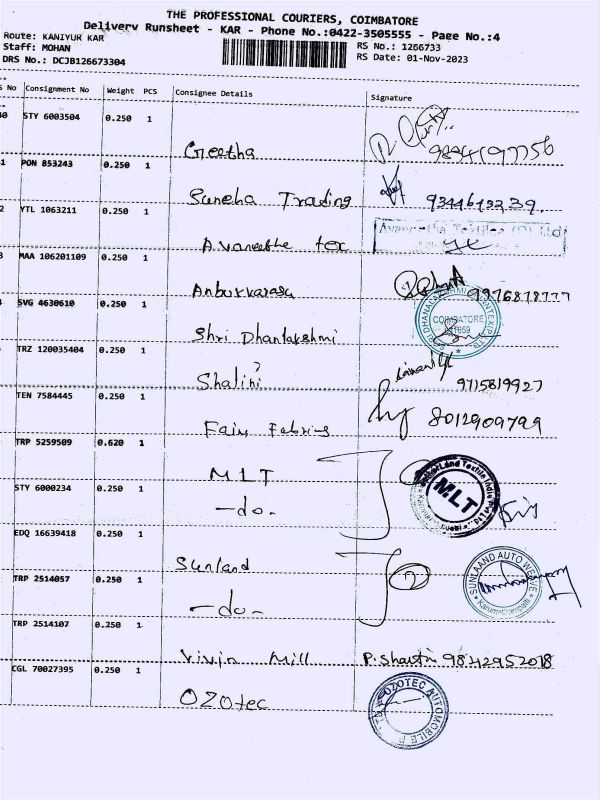 THE PROFESSIONAL COURIERS, COIMBATORE
Delivery Runsheet - KAR - Phone No.:0422-3505555 - Page No.:4
Route: KANIYUR KAR
RS No.: 1266733
Staff: MOHAN
RS Date: 01-Nov-2023
DRS No.: DCJB126673304
S No Consignment No Weight PCS Consignee Details Signature
40 STY 6003504 0.250 1
Geetha
1 PON 853243 0.250 1
Suneha Trading 9344613239
2 YTL 1063211 0.250 1
Avaneethe tex
3 MAA 106201109 0.250 1
Anbukkarasu 9976878777
4 SVG 4630610 0.250 1
COIMBATORE
641659
Shri Dhanlakshmi
5 TRZ 120035404 0.250 1
Shalini 9715819927
TEN 7584445 0.250 1
Fain Fabrics 8012909799
TRP 5259509 0.620 1
M.L.T
MLT
STY 6000234 0.250 1
-do-
EDQ 16639418 0.250 1
Sunland
SUNLAAND AUTO WEAVE
TRP 2514057 0.250 1
-do-
TRP 2514107 0.250 1
Vivin Mill P. Shanthi 9842952018
CGL 70027395 0.250 1
OZOtec
OZOTEC AUTOMOBILE